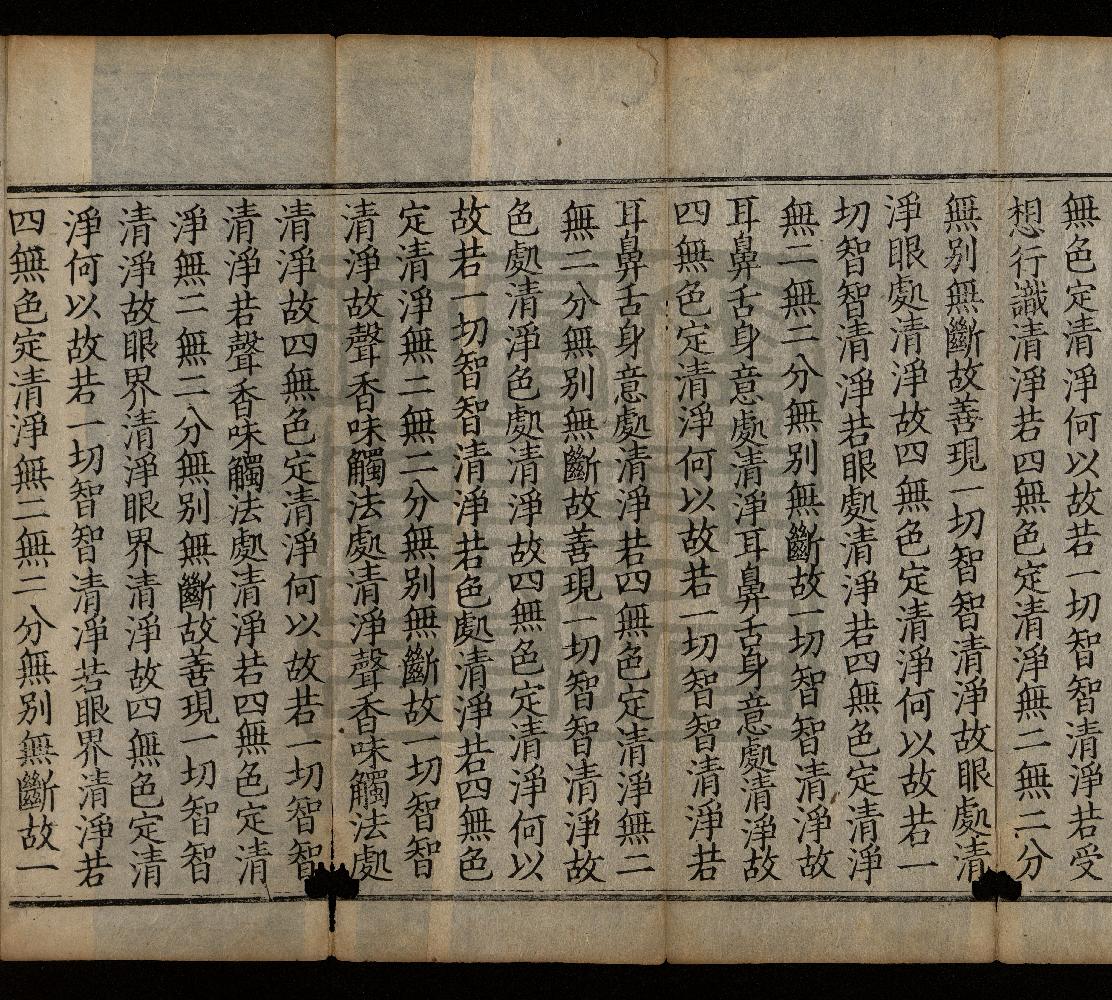 無色定清淨何以故若一切智智清淨若受
想行識清淨若四無色定清淨無二無二分
無別無斷故善現一切智智清淨故眼處清
淨眼處清淨故四無色定清淨何以故若一
切智智清淨若眼處清淨若四無色定清淨
無二無二分無別無斷故一切智智清淨故
耳鼻舌身意處清淨耳鼻舌身意處清淨故
四無色定清淨何以故若一切智智清淨若
耳鼻舌身意處清淨若四無色定清淨無二
無二分無別無斷故善現一切智智清淨故
色處清淨色處清淨故四無色定清淨何以
故若一切智智清淨若色處清淨若四無色
定清淨無二無二分無別無斷故一切智智
清淨故聲香味觸法處清淨聲香味觸法處
清淨故四無色定清淨何以故若一切智智
清淨若聲香味觸法處清淨若四無色定清
淨無二無二分無別無斷故善現一切智智
清淨故眼界清淨眼界清淨故四無色定清
淨何以故若一切智智清淨若眼界清淨若
四無色定清淨無二無二分無別無斷故一